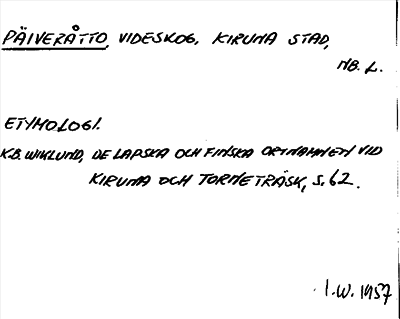 PÄIVERÅTTO, VIDESKOG. KIRUNA STAD,
NB. L.
ETYMOLOGI.
K.B. WIKLUND, DE LAPSKA OCH FINSKA ORTNAMNEN VID
KIRUNA OCH TORNETRÄSK, S. 62.
I.W. 1957